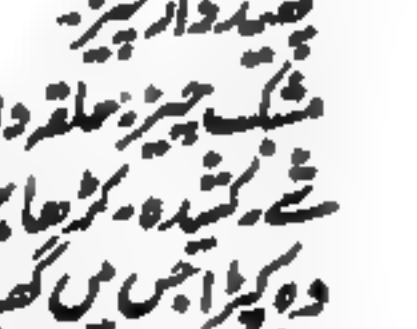 چھیددار چیز۔
مشبک چیز۔ حلقہ دا
شے۔ کشیدہ۔ کڑھا
وہ کپڑا جس میں